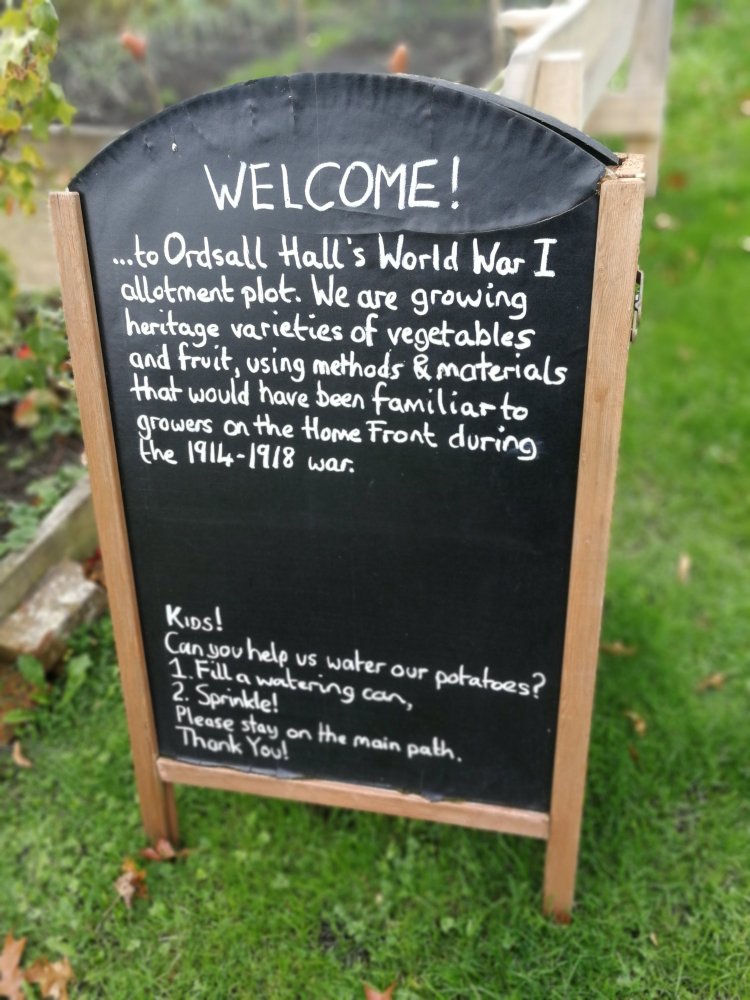 WELCOME!
...to Ordsall Hall's World War I
allotment plot. We are growing
heritage varieties of vegetables
and fruit, using methods & materials
that would have been familiar to
growers on the Home Front during
the 1914-1918 war.
KIDS!
Can you help us water our potatoes?
1. Fill a watering can,
2. Sprinkle!
Please stay on the main path.
Thank You!